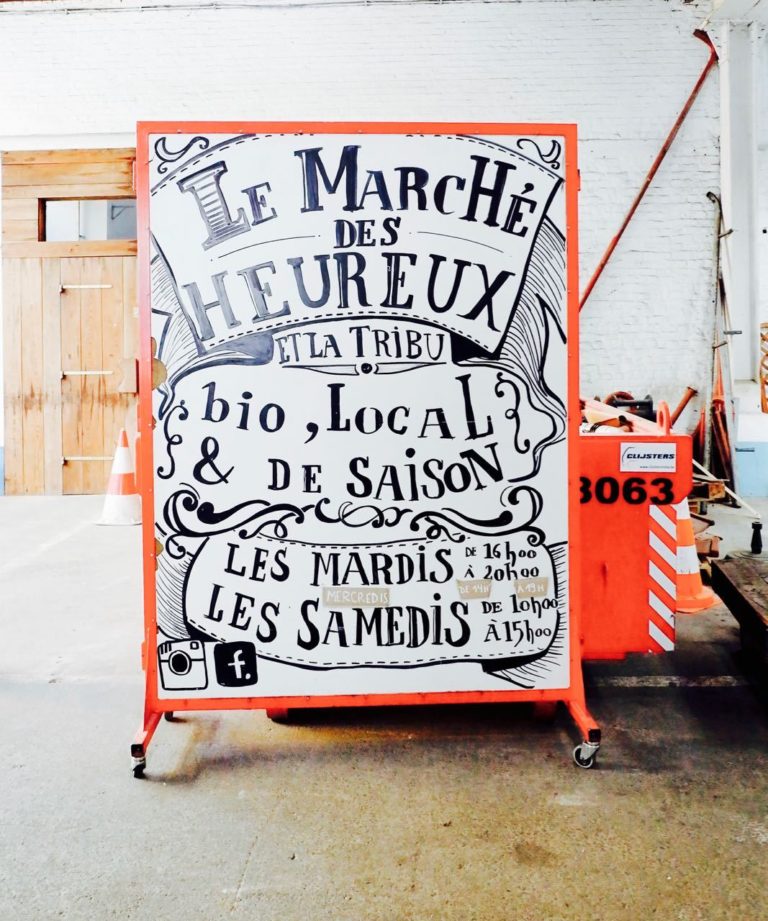 LE MARCHÉ
DES
HEUREUX
ET LA TRIBU
bio, LOCAL
& DE SAISON
LES MARDIS DE 16h00
À 20h00
MERCREDIS DE 14H À 19H
LES SAMEDIS DE 10h00
À 15h00
f
CLIJSTERS
3063